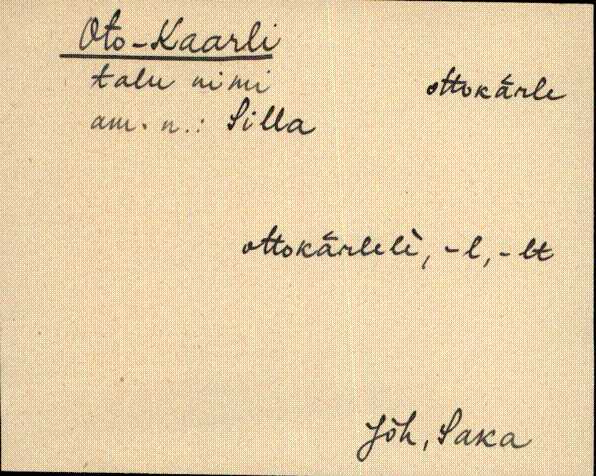 Oto-Kaarli
talu nimi
ottokārle
am. n.: Silla
ottokārlelè, -l, -lt
Jõh, Saka